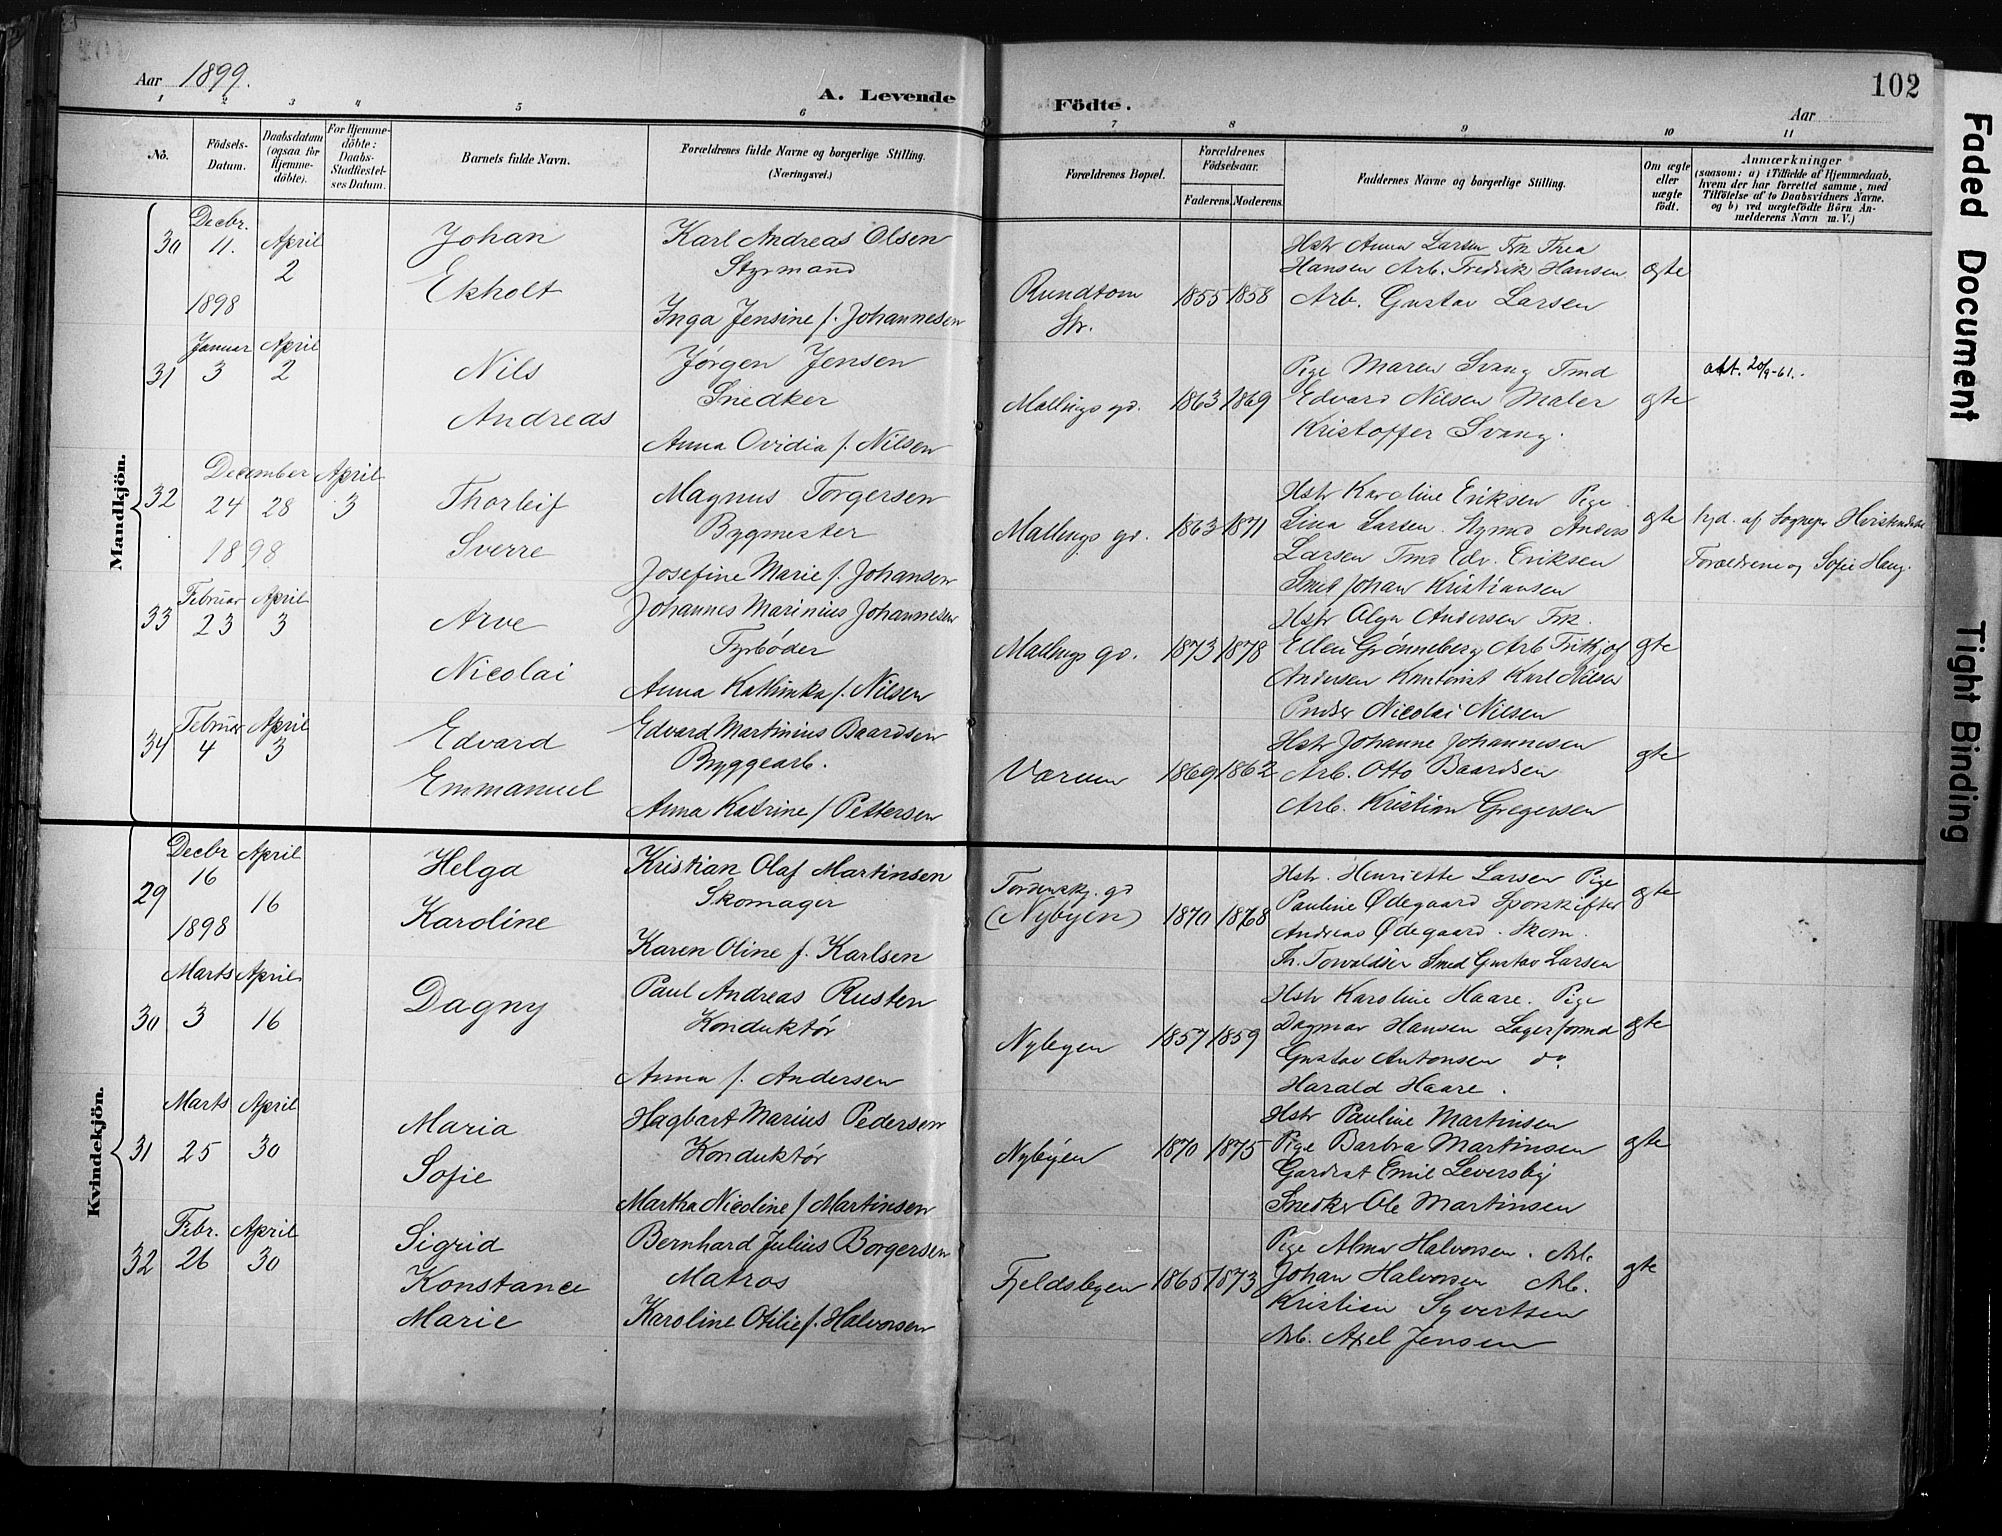 Aar 1899.
A. Levende
Födte.
102
Aar
1 2 3 4 5 6 7 8 9 10 11
No.
Födsels-Datum.
Daabsdatum (ogsaa for Hjemmedöbte).
For Hjemmedöbte: Daabs-Stadfæstelses Datum.
Barnets fulde Navn.
Forældrenes fulde Navne og borgerlige Stilling. (Næringsvei.)
Forældrenes Bopæl.
Forældrenes Födselsaar.
Faderens. Moderens.
Faddernes Navne og borgerlige Stilling.
Om ægte eller uægte födt.
Anmærkninger
(saasom: a) i Tilfælde af Hjemmedaab,
hvem der har forrettet samme, med
Tilföielse af to Daabsvidners Navne.
og b) ved uægtefödte Börn An-
melderens Navn m. V.)
Mandkjön.
30 Decbr. 11. 1898 April 2
Johan
Ekholt
Karl Andreas Olsen
Styrmand
Inga Jensine f. Johannesen
Rundtom
Str.
1855 1858
Hstr Anna Larsen Frk Thea
Hansen Arb. Fredrik Hansen
Arb. Gustav Larsen
ægte
31 Januar 3 April 2
Nils
Andreas
Jørgen Jensen
Snedker
Anna Ovidia f. Nilsen
Mallings gd. 1863 1869
Pige Maren Svang Tmd
Edvard Nilsen Maler
Kristoffer Svang.
ægte
att. 20/9-61.
32 December 24 28 1898 April 3
Thorleif
Sverre
Magnus Torgersen
Bygmester
Josefine Marie f. Johansen
Mallings gd. 1863 1871
Hstr Karoline Eriksen Pige
Lina Larsen. Stymd Anders
Larsen Tmd Edv. Eriksen
Smed Johan Kristiansen
ægte
hjd. af Sognepr
Forældrene og Sofie Haug.
33 Februar 23 April 3
Arve
Nicolai
Johannes Marinius Johannesen
Fyrbøder
Anna Kathinka f. Nilsen
Mallings gd. 1873 1878
Hstr Olga Andersen Frk.
Ellen Grønneberg Arb Frithjof
Andersen Kontorist Karl Nilsen
Pudser Nicolai Nilsen
ægte
34 Februar 4 April 3
Edvard
Emmanuel
Edvard Martinius Baardsen
Byggearb.
Anna Katrine f Pettersen
Værum 1869 1862
Hstr Johanne Johannesen
Arb. Otto Baardsen
Arb. Kristian Gregersen
ægte
Kvindekjön.
29 Decbr 16 1898 April 16
Helga
Karoline
Kristian Olaf Martinsen
Skomager
Karen Oline f. Karlsen
Tordenskj. gd
(Nybyen) 1870 1868
Hstr. Henriette Larsen Pige
Pauline Ødegaard Sporskifter
Andreas Ødegaard. Skom.
Th. Torvaldsen Smed Gustav Larsen
ægte
30 Marts 3 April 16
Dagny
Paul Andreas Rusten
Konduktør
Anna f. Andersen
Nybyen 1857 1859
Hstr Karoline Haare. Pige
Dagmar Hansen Lagerformd
Gustav Antonsen do
Harald Haare.
ægte
31 Marts 25 April 30
Maria
Sofie
Hagbart Marius Pedersen
Konduktør
Martha Nicoline f Martinsen
Nybyen 1870 1875
Hstr Pauline Martinsen
Pige Barbra Martinsen
Gardist Emil Leversby
Snedker Ole Martinsen
ægte
32 Febr. 26 April 30
Sigrid
Konstance
Marie
Bernhard Julius Borgersen
Matros
Karoline Otilie f. Halvorsen
Fjeldsbyen 1865 1873
Pige Alma Halvorsen. Arb.
Johan Halvorsen Arb.
Kristian Syvertsen
Arb. Axel Jensen
ægte
Faded Document
Tight Binding